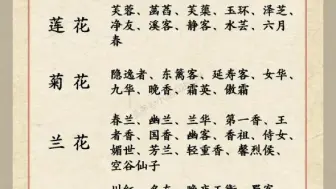 莲花
芙蓉、菡萏、芙蕖、玉环、泽芝、
净友、溪客、静客、水芸、六月
春
菊花
隐逸者、东篱客、延寿客、女华、
九华、晚香、霜英、傲霜
兰花
春兰、幽兰、兰华、第一香、王
者香、国香、幽客、香祖、侍女、
媚世、芳兰、轻重香、馨烈侯、
空谷仙子